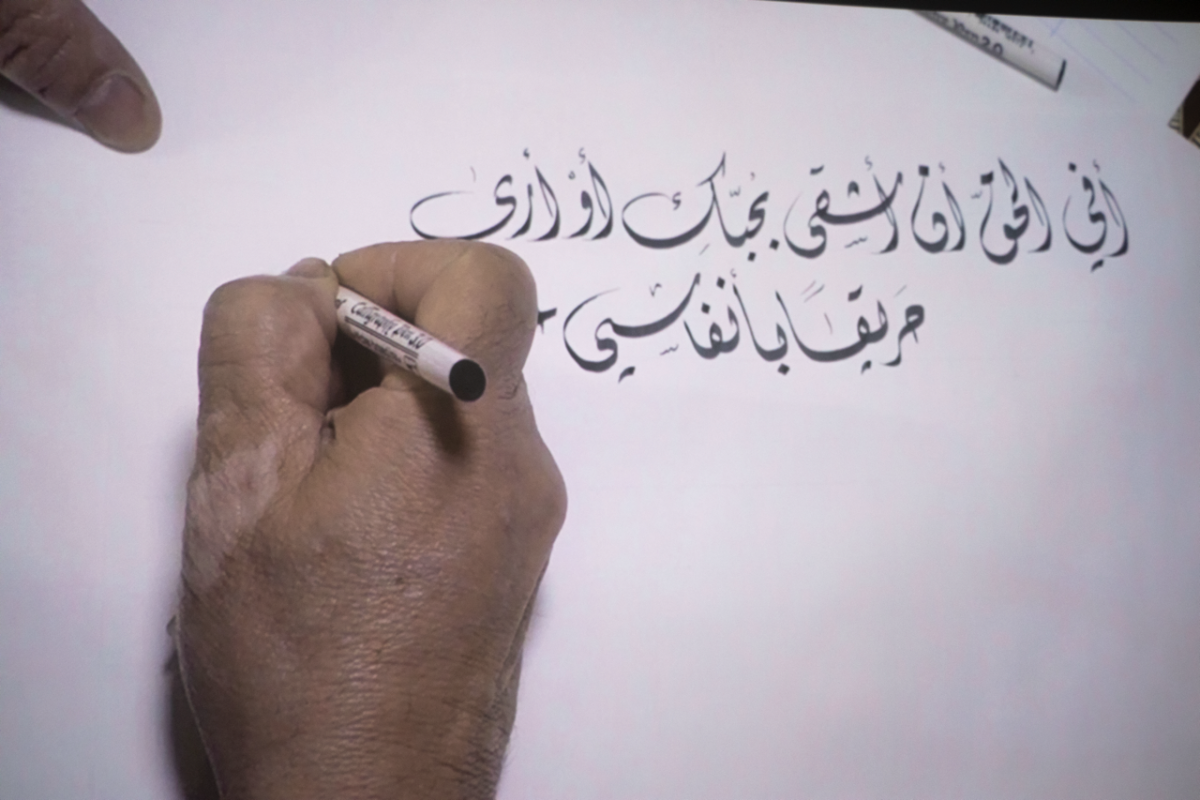 أفي الحقّ أن أشقى بحُبّكِ أوْ أرى
حَريقًا بأنفاسي